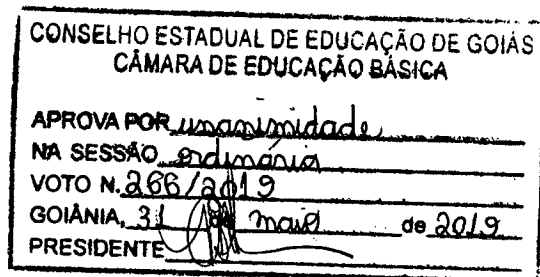 CONSELHO ESTADUAL DE EDUCAÇÃO DE GOIÁS
CÂMARA DE EDUCAÇÃO BÁSICA
APROVA POR unanimidade
NA SESSÃO ordinária
VOTO N. 266/2019
GOIÂNIA, 31 de maio de 2019
PRESIDENTE